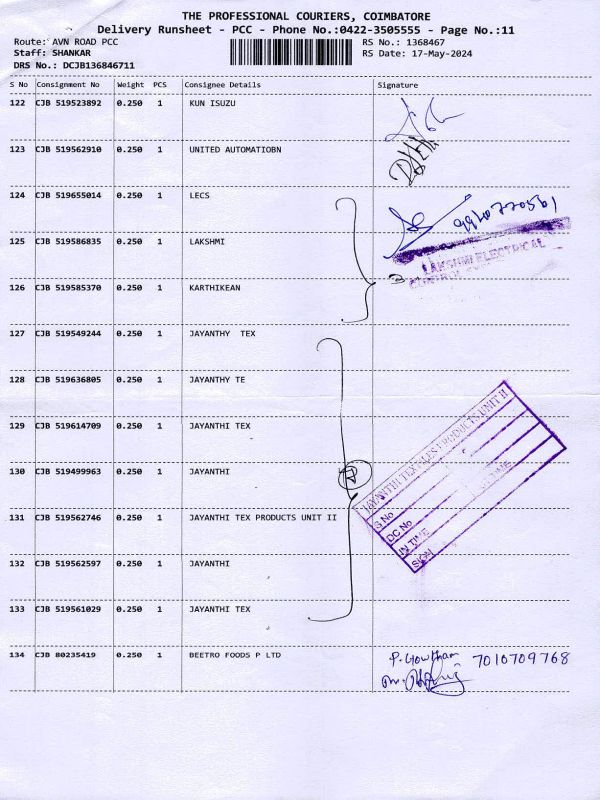 THE PROFESSIONAL COURIERS, COIMBATORE
Delivery Runsheet - PCC - Phone No.:0422-3505555 - Page No.:11
Route: AVN ROAD PCC RS No.: 1368467
Staff: SHANKAR RS Date: 17-May-2024
DRS No.: DCJB136846711
S No Consignment No Weight PCS Consignee Details Signature
122 CJB 519523892 0.250 1 KUN ISUZU
123 CJB 519562910 0.250 1 UNITED AUTOMATIOBN
124 CJB 519655014 0.250 1 LECS
125 CJB 519586835 0.250 1 LAKSHMI
LAKSHMI ELECTRICAL
3
126 CJB 519585370 0.250 1 KARTHIKEAN
127 CJB 519549244 0.250 1 JAYANTHY TEX
128 CJB 519636805 0.250 1 JAYANTHY TE
129 CJB 519614709 0.250 1 JAYANTHI TEX
130 CJB 519499963 0.250 1 JAYANTHI
7
JAYANTHI TEXTILES PRODUCTS UNIT II
S No
DC No
IN TIME
SIGN
131 CJB 519562746 0.250 1 JAYANTHI TEX PRODUCTS UNIT II
132 CJB 519562597 0.250 1 JAYANTHI
133 CJB 519561029 0.250 1 JAYANTHI TEX
134 CJB 80235419 0.250 1 BEETRO FOODS P LTD
P. Gowtham 7010709768